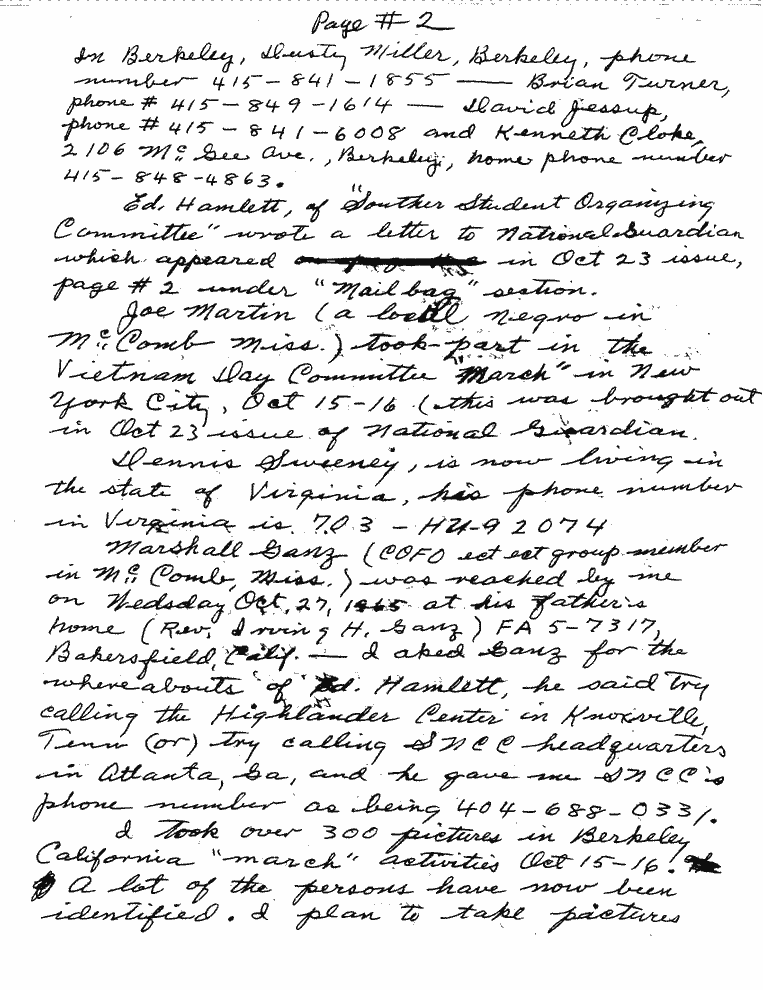 Page # 2
In Berkeley, Dusty Miller, Berkeley, phone
number 415-841-1855 — Brian Turner,
phone # 415-849-1614 — David Jessup,
phone # 415-841-6008 and Kenneth Cloke,
2106 Mc Gee Ave., Berkeley, home phone number
415-848-4863.
Ed. Hamlett, of "Souther Student Organizing
Committee" wrote a letter to National Guardian
which appeared in Oct 23 issue,
page # 2 under "Mailbag" section.
Joe Martin (a local negro in
Mc Comb Miss.) took part in the
Vietnam Day Committee "March" in New
York City, Oct 15-16 (this was brought out
in Oct 23 issue of National Guardian.
Dennis Sweeney, is now living in
the state of Virginia, his phone number
in Virginia is 703-HU-9 2074
Marshall Ganz (COFO ect ect group member
in Mc Comb, Miss.) was reached by me
on Wedsday Oct, 27, 1965 at his father's
home (Rev. Irving H. Ganz) FA 5-7317,
Bakersfield, Calif. — I aked Ganz for the
whereabouts of Ed. Hamlett, he said try
calling the Highlander Center in Knoxville,
Tenn (or) try calling SNCC headquarters
in Atlanta, Ga, and he gave me SNCC's
phone number as being 404-688-0331.
I took over 300 pictures in Berkeley
California "march" activities Oct 15-16.
A lot of the persons have now been
identified. I plan to take pictures